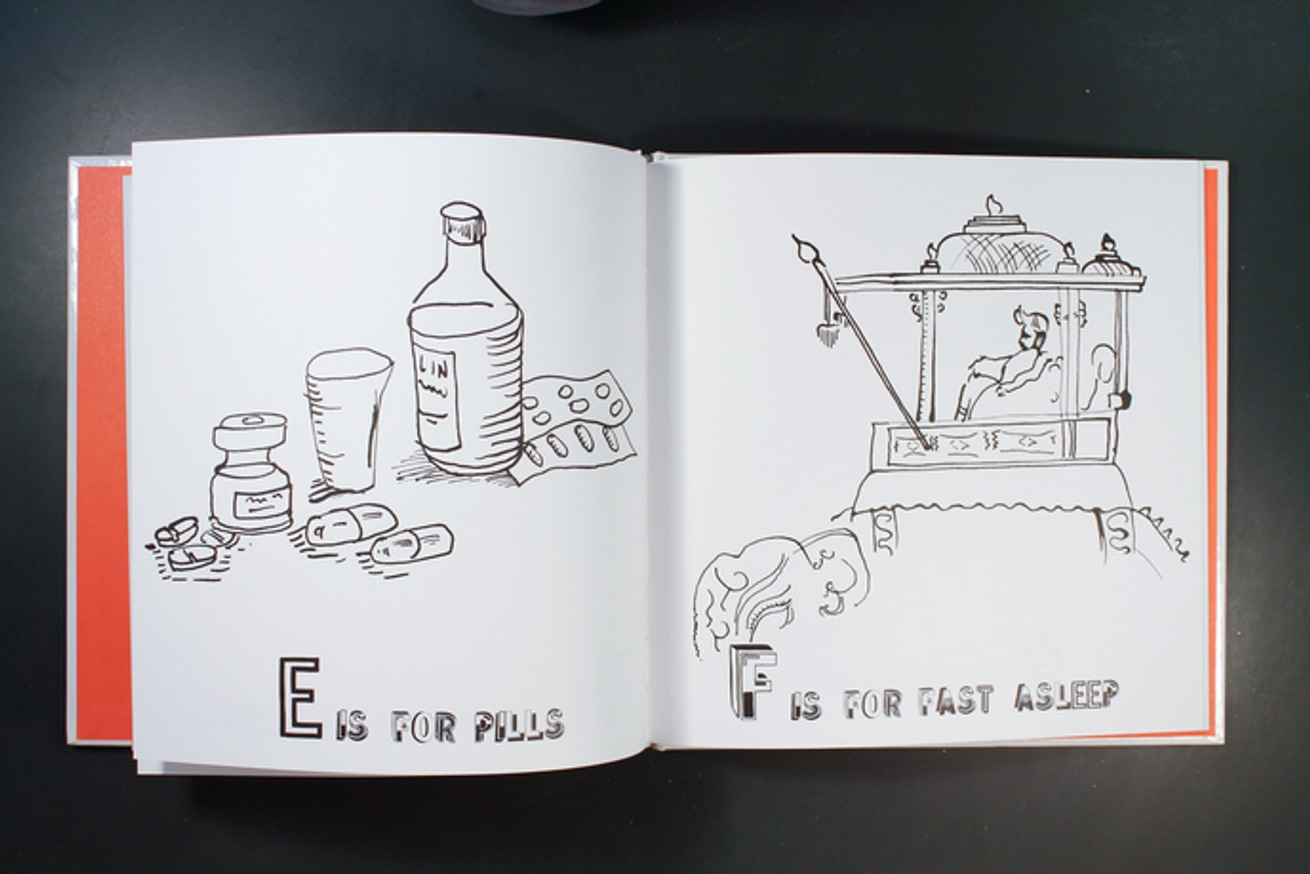 LIN
E IS FOR PILLS
F IS FOR FAST ASLEEP